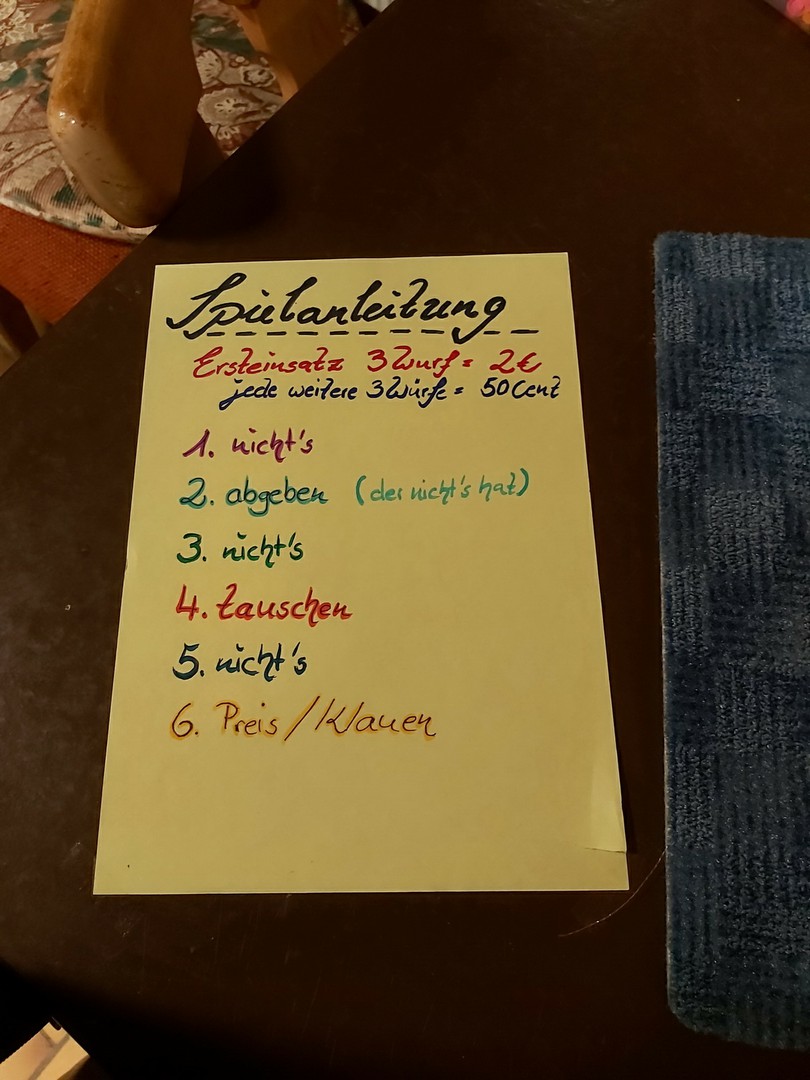 Spielanleitung
Ersteinsatz 3 Wurf = 2€
jede weitere 3 Würfe = 50 Cent
1. nicht's
2. abgeben (der nicht's hat)
3. nicht's
4. tauschen
5. nicht's
6. Preis / Klauen